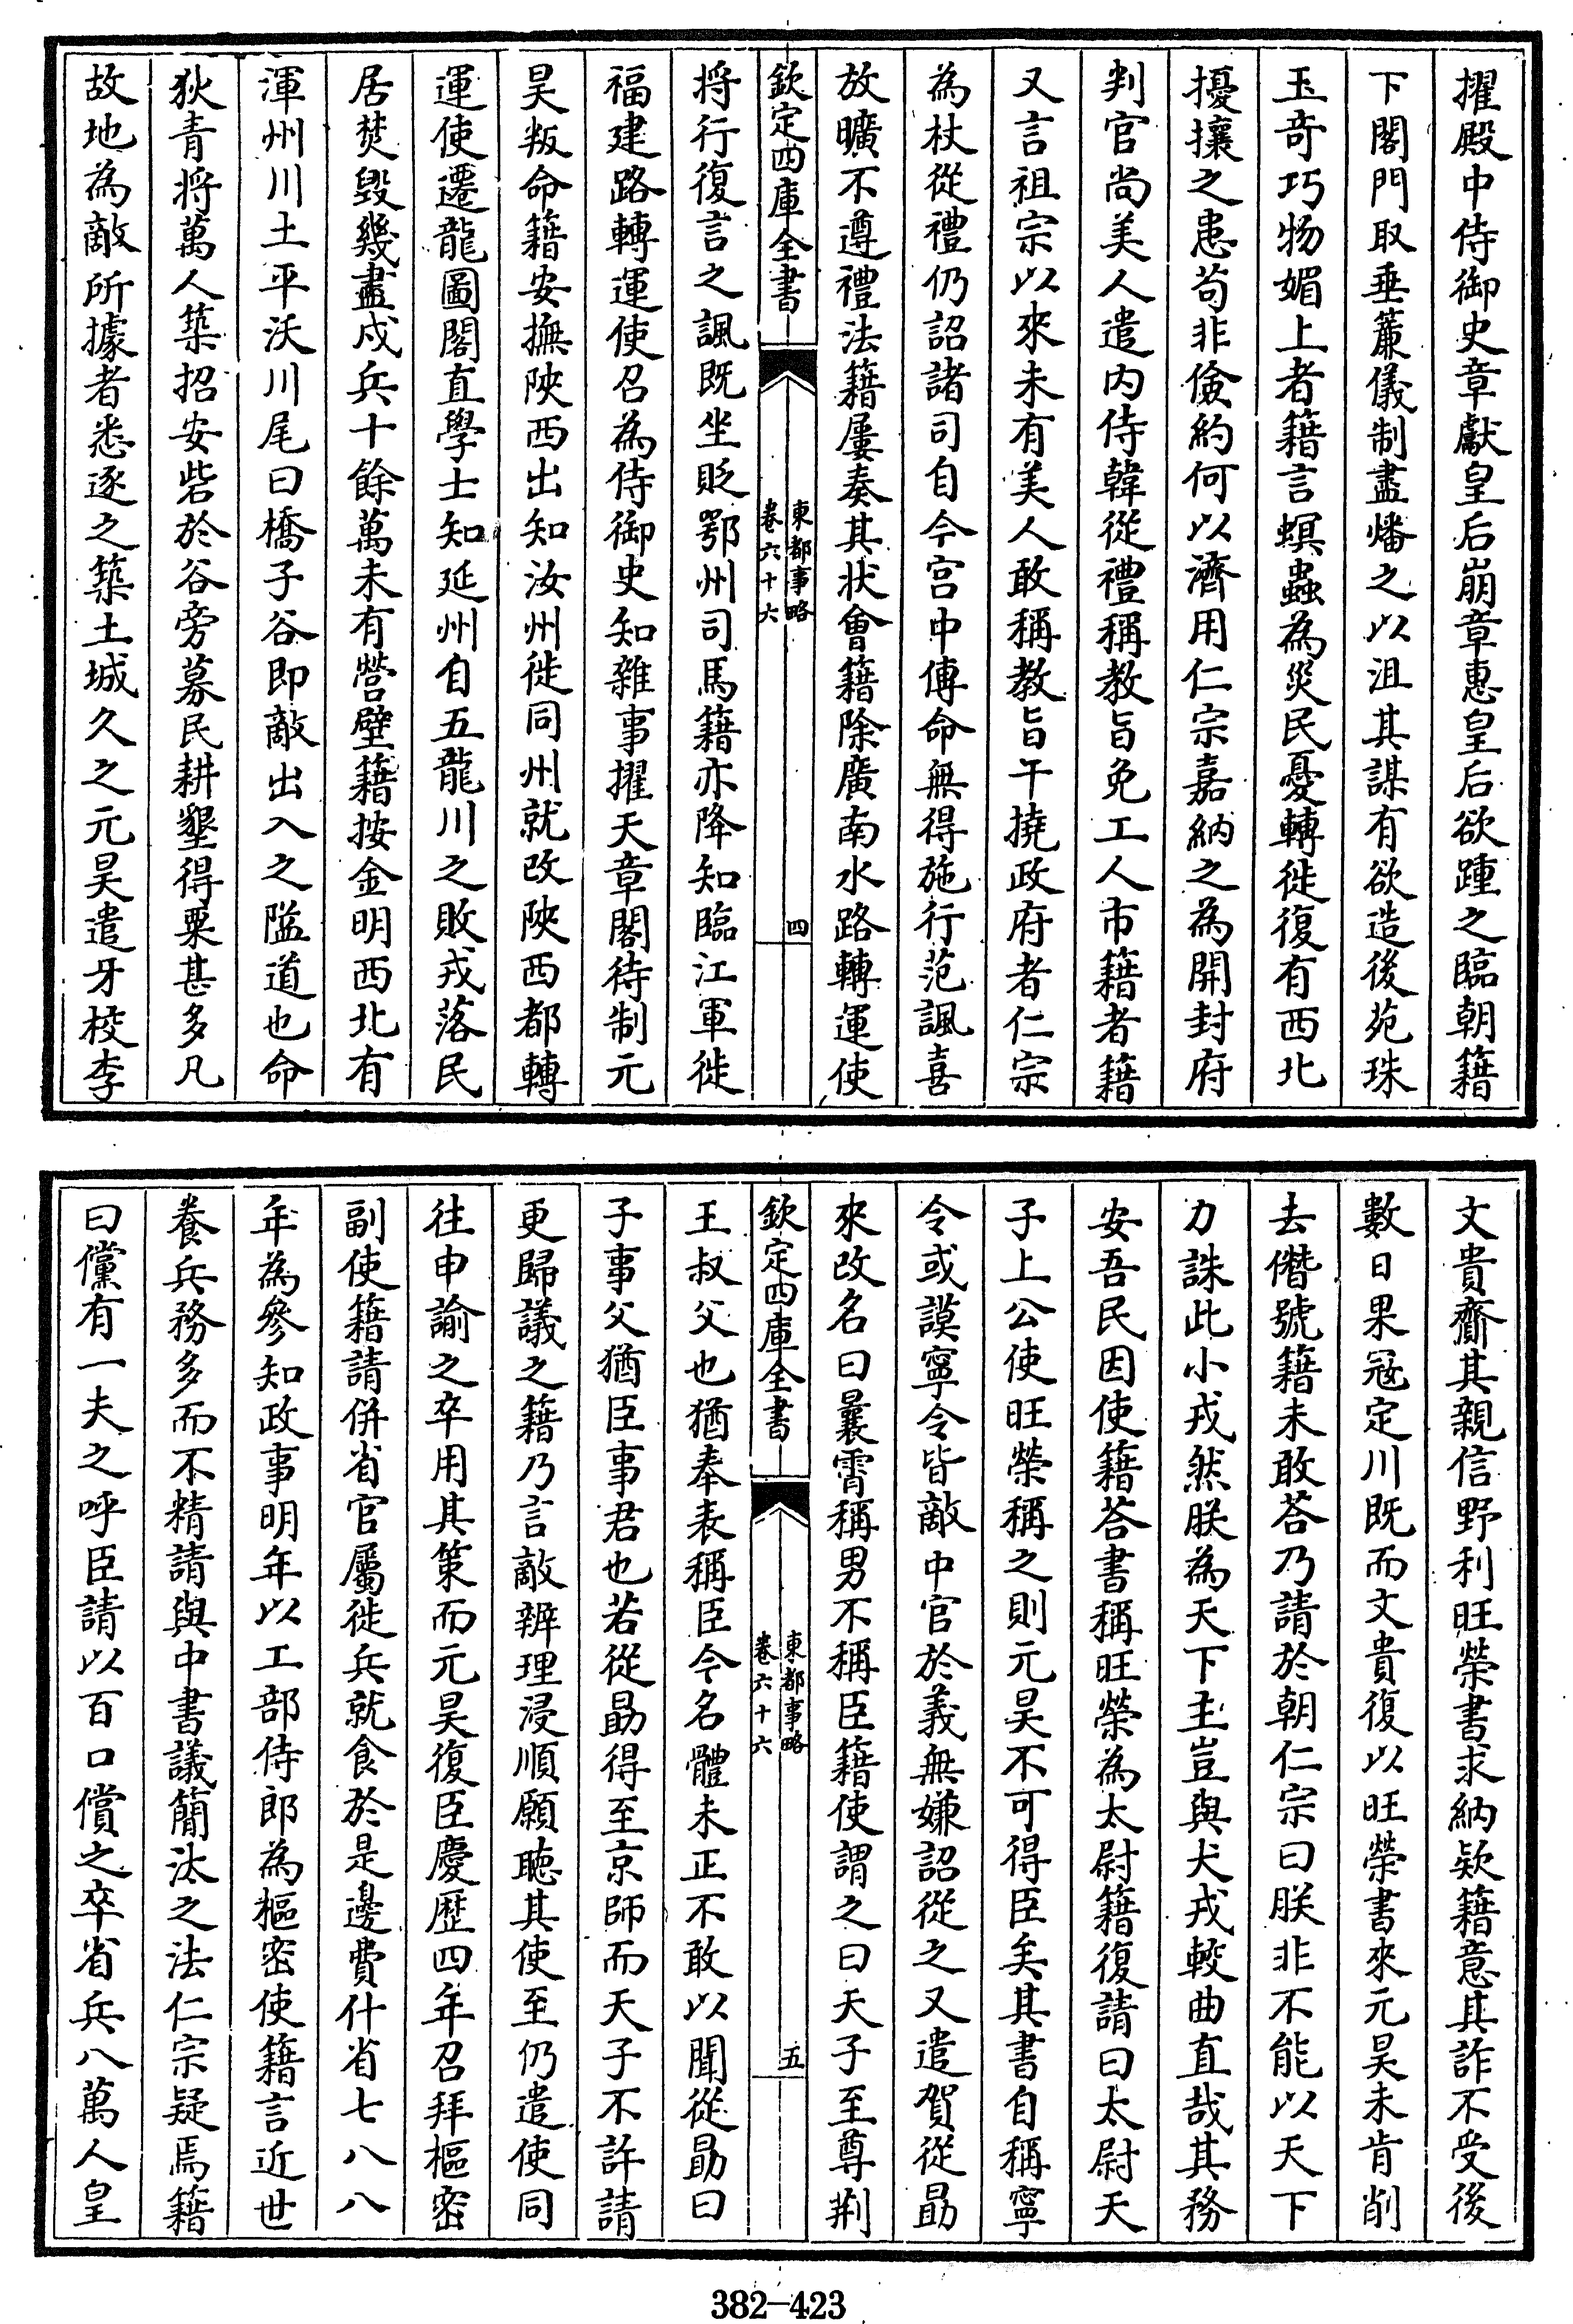 擢殿中侍御史章獻皇后崩章惠皇后欲踵之臨朝籍
下閤門取垂簾儀制盡燔之以沮其謀有欲造後苑珠
玉奇巧物媚上者籍言螟蟲為災民憂轉徙復有西北
擾攘之患苟非儉約何以濟用仁宗嘉納之為開封府
判官尚美人遣内侍韓從禮稱教旨免工人市籍者籍
又言祖宗以來未有美人敢稱教旨干撓政府者仁宗
為杖從禮仍詔諸司自今宫中傳命無得施行范諷喜
放曠不遵禮法籍屢奏其状會籍除廣南水路轉運使
欽定四庫全書
東都事略
卷六十六
四
將行復言之諷既坐貶鄂州司馬籍亦降知臨江軍徙
福建路轉運使召為侍御史知雜事擢天章閣待制元
昊叛命籍安撫陜西出知汝州徙同州就改陜西都轉
運使遷龍圖閣直學士知延州自五龍川之敗戎落民
居焚毁幾盡戍兵十餘萬未有營壁籍按金明西北有
渾州川土平沃川尾曰橋子谷即敵出入之隘道也命
狄青將萬人築招安砦於谷旁募民耕墾得粟甚多凡
故地為敵所據者悉逐之築土城久之元昊遣牙校李
文貴齎其親信野利旺榮書求納欵籍意其詐不受後
數日果寇定川既而文貴復以旺榮書來元昊未肯削
去僭號籍未敢荅乃請於朝仁宗曰朕非不能以天下
力誅此小戎然朕為天下主豈與犬戎較曲直哉其務
安吾民因使籍荅書稱旺榮為太尉籍復請曰太尉天
子上公使旺榮稱之則元昊不可得臣矣其書自稱寧
令或謨寧令皆敵中官於義無嫌詔從之又遣賀從勗
來改名曰曩霄稱男不稱臣籍使謂之曰天子至尊荆
欽定四庫全書
東都事略
卷六十六
五
王叔父也猶奉表稱臣今名體未正不敢以聞從勗曰
子事父猶臣事君也若從勗得至京師而天子不許請
更歸議之籍乃言敵辨理浸順願聽其使至仍遣使同
往申諭之卒用其策而元昊復臣慶歴四年召拜樞密
副使籍請併省官屬徙兵就食於是邊費什省七八八
年為參知政事明年以工部侍郎為樞密使籍言近世
養兵務多而不精請與中書議簡汰之法仁宗疑焉籍
曰儻有一夫之呼臣請以百口償之卒省兵八萬人皇
382-423